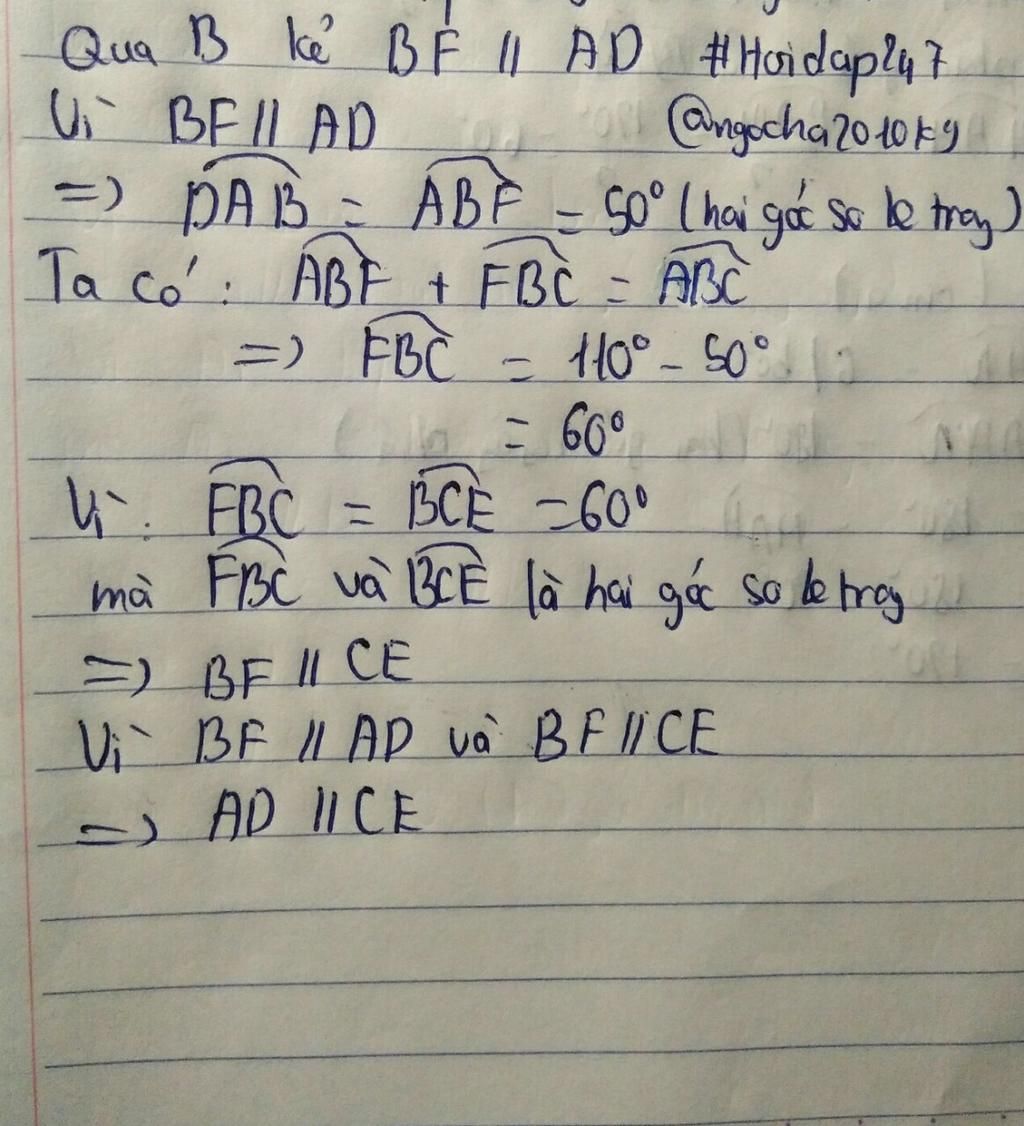 Qua B kẻ BF // AD #Hoidap247
Vì BF // AD @ngocha2010kg
=> DAB = ABF = 50° (hai góc so le trong)
Ta có: ABF + FBC = ABC
=> FBC = 110° - 50°
= 60°
Vì: FBC = BCE = 60°
mà FBC và BCE là hai góc so le trong
=> BF // CE
Vì BF // AD và BF // CE
=> AD // CE